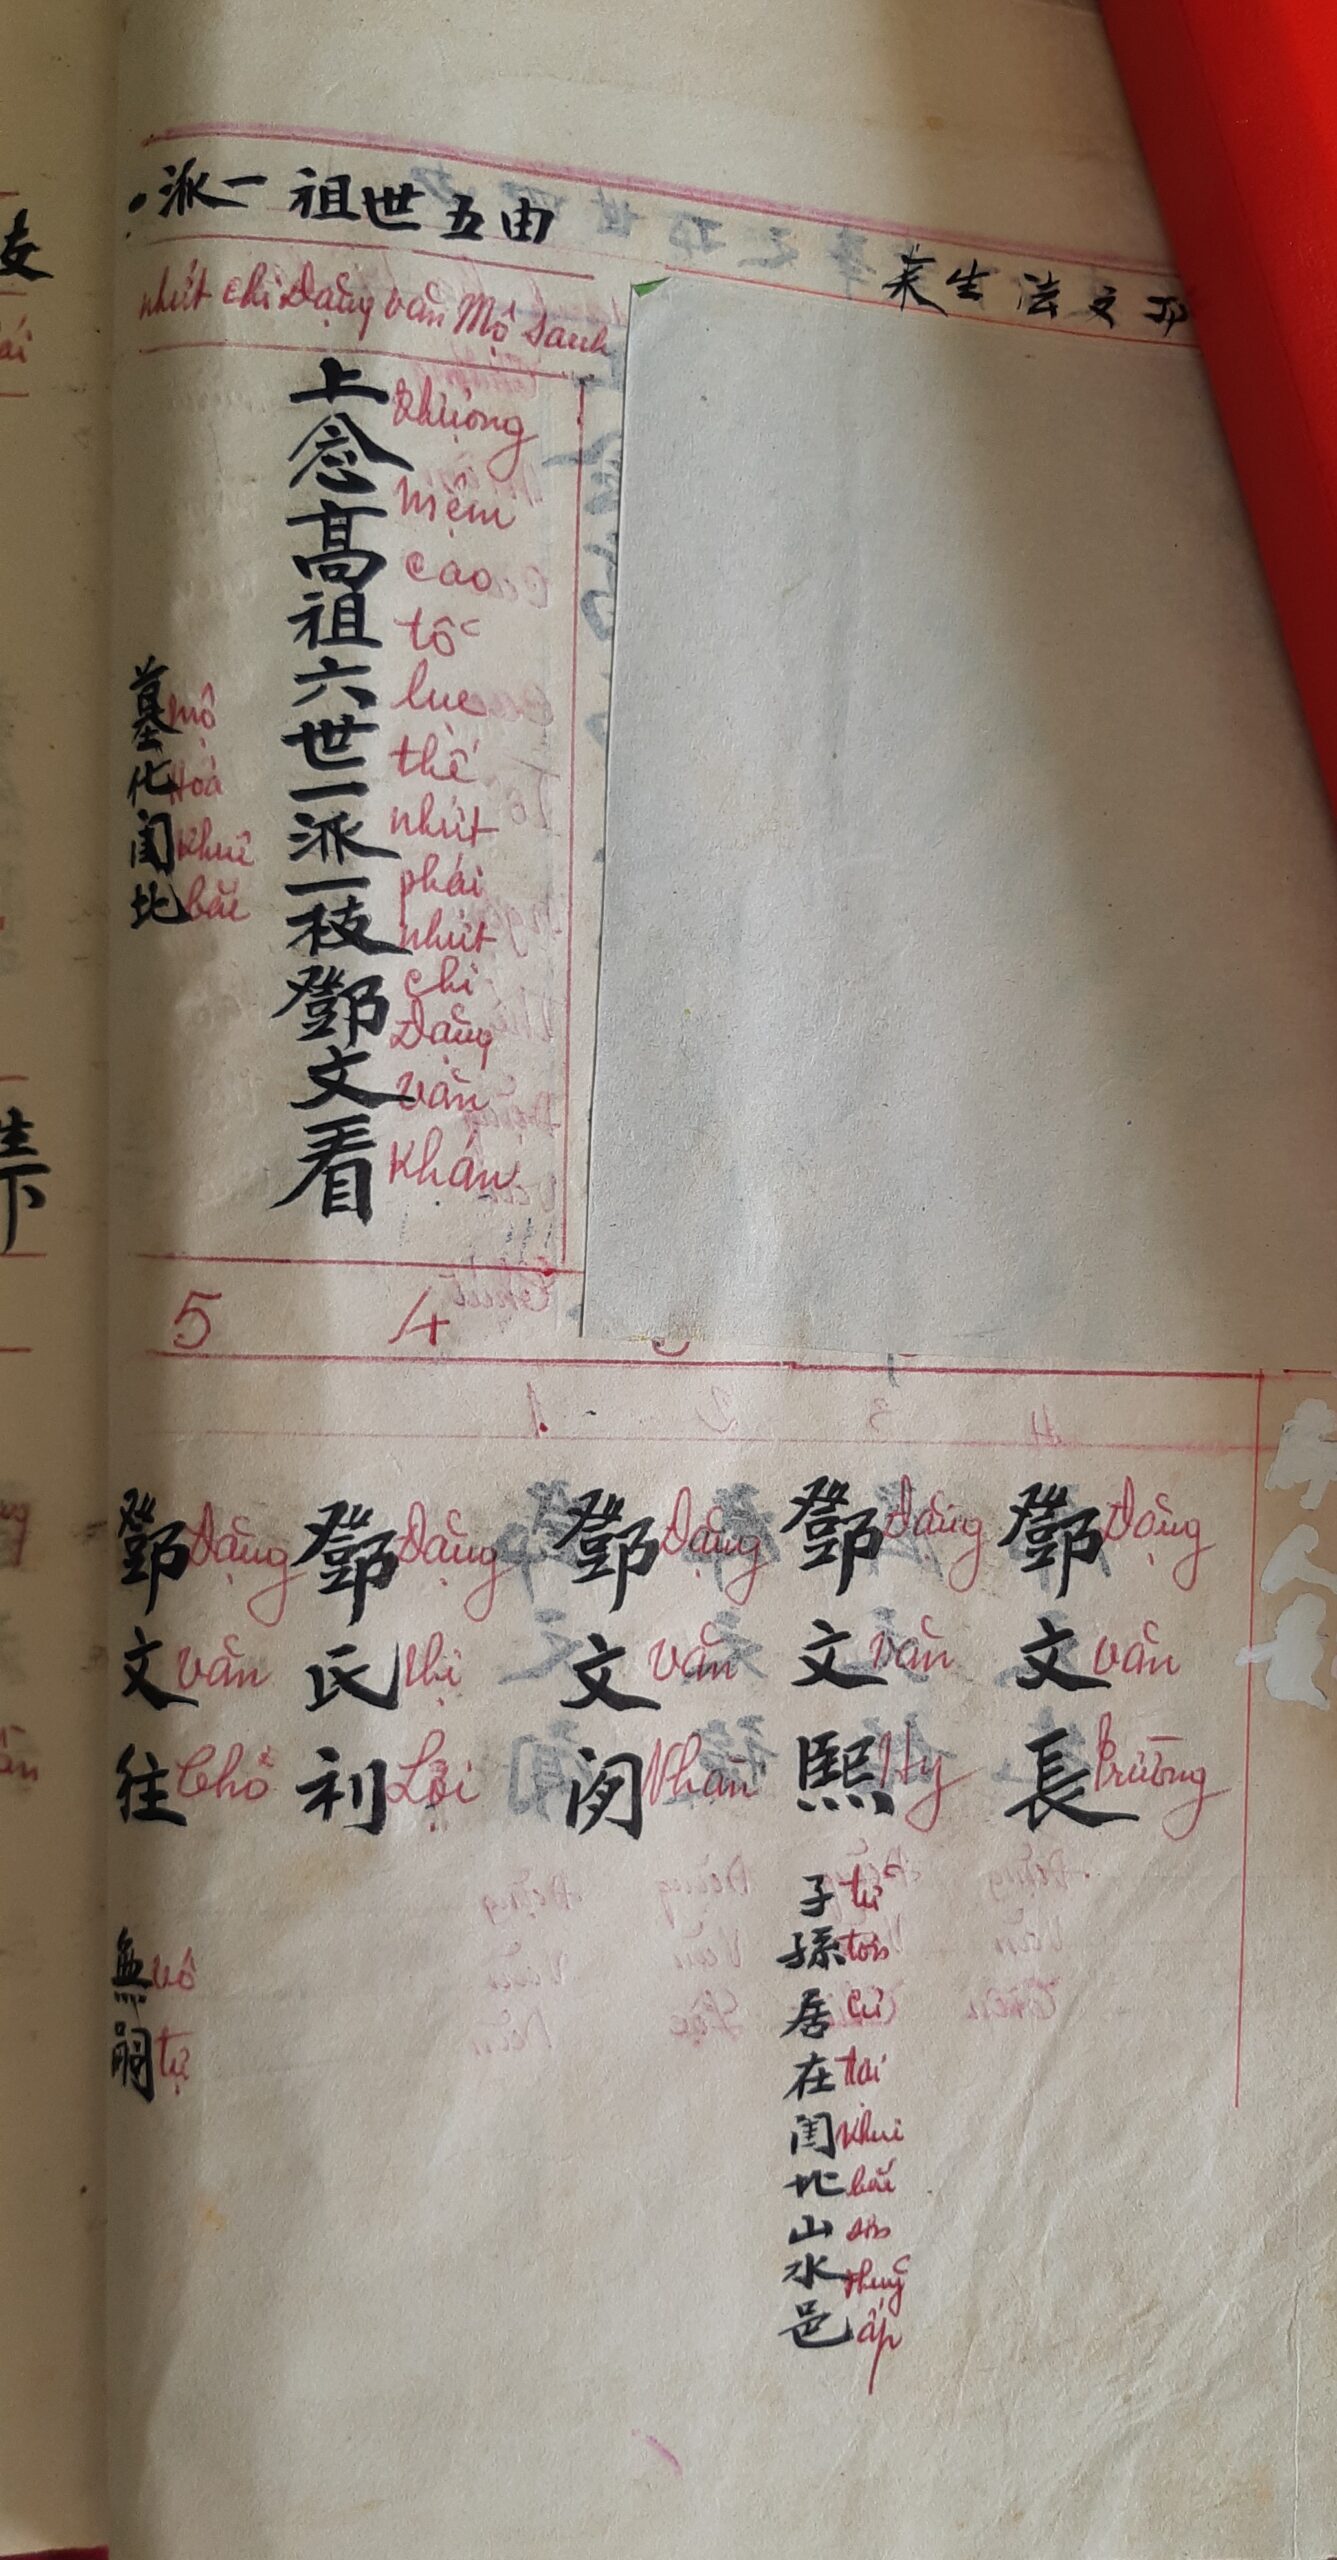 由五世祖一派
nhứt chi Đặng văn Mộ sanh
上念高祖六世一派一枝鄧文看
thượng
niệm
cao
tổ
lục
thế
nhứt
phái
nhứt
chi
Đặng
văn
Khán
墓化閨北
mộ
Hoá
Khuê
bắc
4
5
鄧文長
Đặng
văn
Trường
鄧文熙
Đặng
văn
Hy
子孫居在閨北山水邑
tử
tôn
cư
tại
khuê
bắc
sơn
thuỷ
ấp
鄧文閑
Đặng
văn
Nhàn
鄧氏利
Đặng
thị
Lợi
鄧文往
Đặng
văn
無嗣
vô
tự